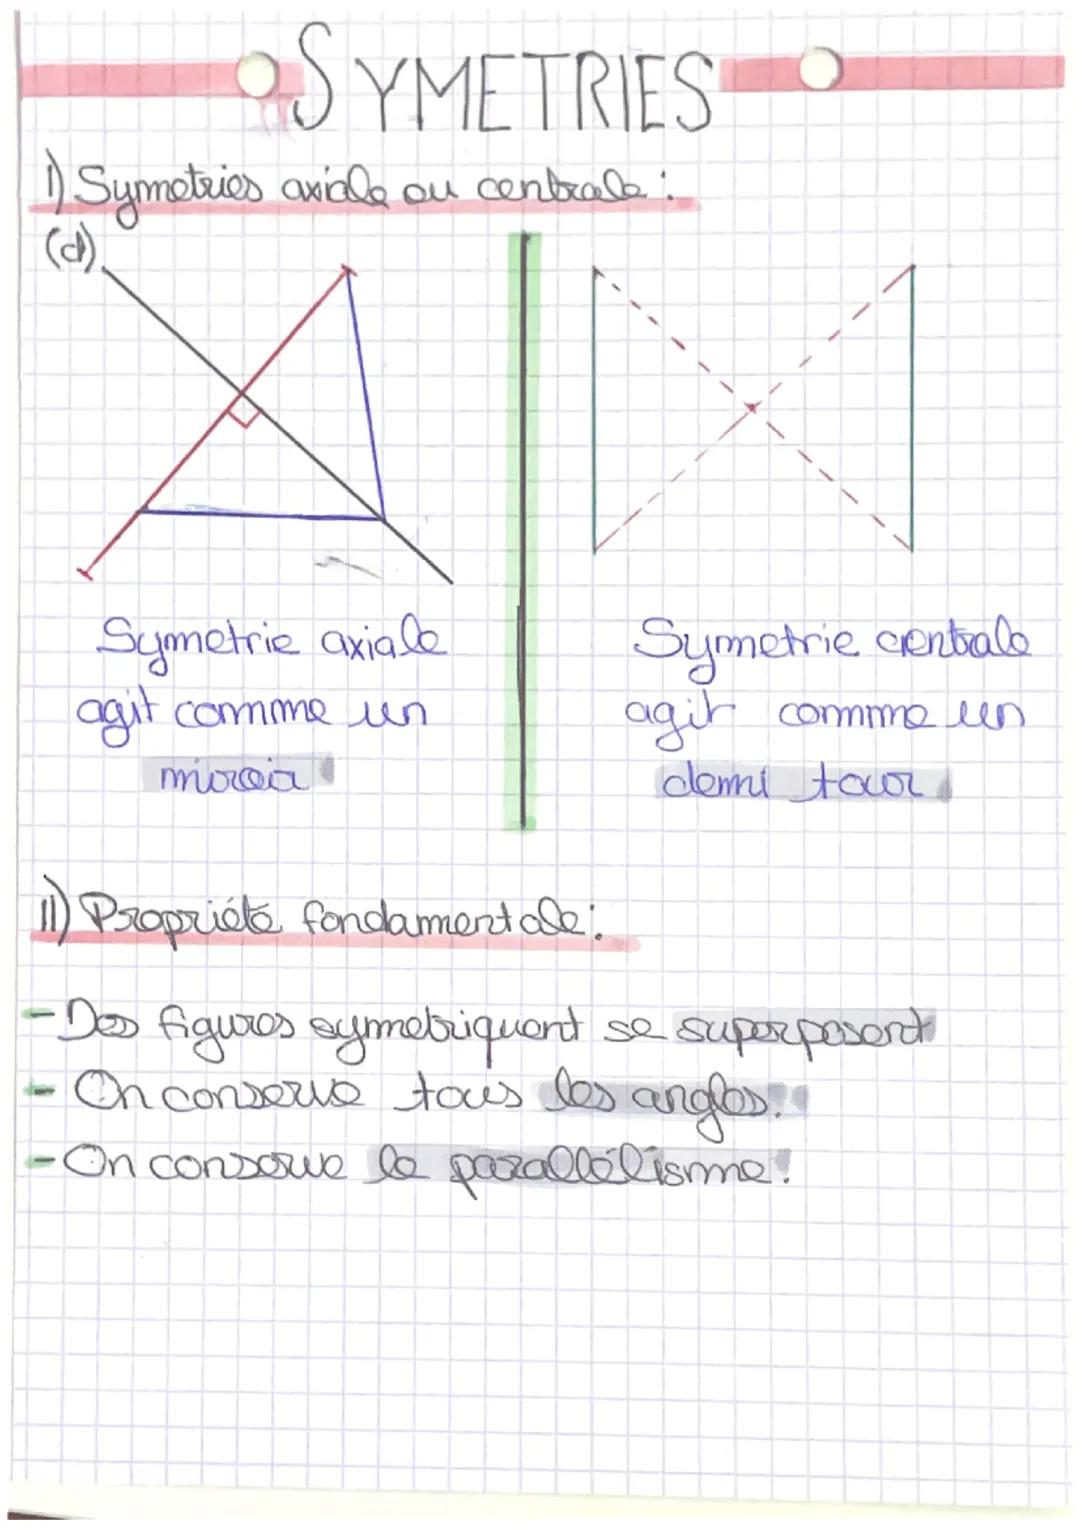 SYMETRIES
I) Symetries axiale ou centrale :
(d)
Symetrie axiale
agit comme un
miroir
Symetrie centrale
agit comme un
demi tour
II) Propriété fondamentale :
- Des figures symetriquent se superposent
- On conserve tous les angles.
- On conserve le parallélisme.